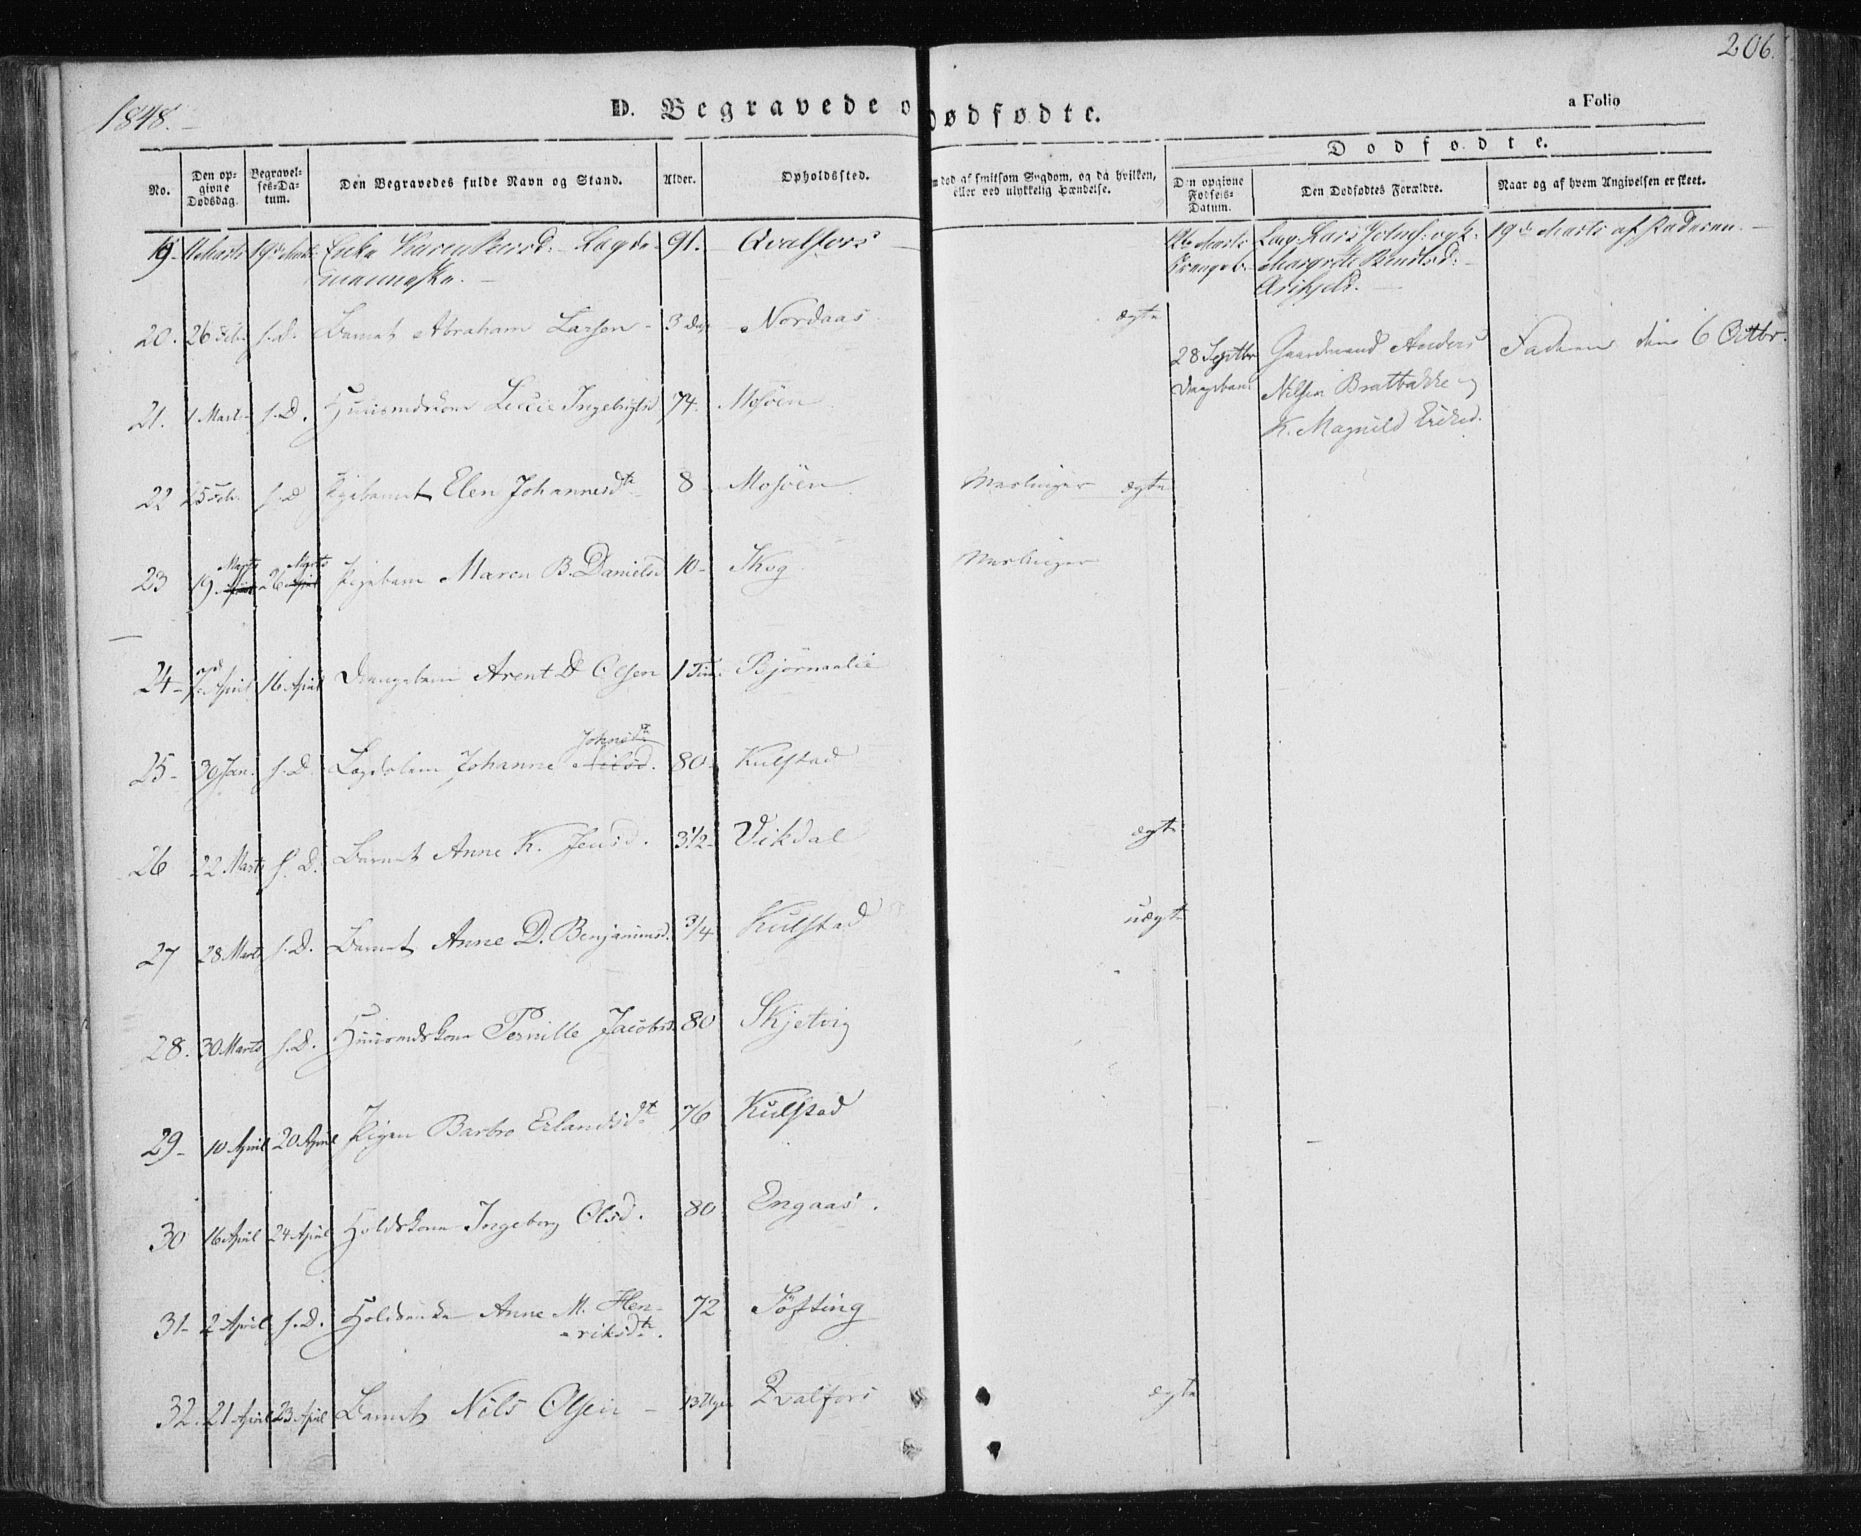 206.
1848.
D. Begravede o dødfødte.
a Folio
Dødfødte.
No.
Den opgivne Dødsdag.
Begravelses-Datum.
Den Begravedes fulde Navn og Stand.
Alder.
Opholdssted.
død af smitsom Sygdom, og da hvilken, eller ved ulykkelig Hændelse.
Den opgivne Fødsels-Datum.
Den Dødfødtes Forældre.
Naar og af hvem Angivelsen er skeet.
19 11 Marts 19de Marts Enke Karen Lagds- 91. Qvalfors
menneske.
Marts Lars 19de Marts af Faderen.
Margrete
20. 26 Feb. s. D. Barnet Abraham Larsen 3 Dage Nordaas ægte
28 Septbr Gaardmand Anders Faderen den 6 Octbr.
Drengebarn Nilsen Bratbakke og
K. Magnild Ericsd.
21. 1 Marts s. D. Huusmdskone Ingebrigtsd 74. Mosöen
22 25 Feb. s. D Pigebarnet Elen Johannesdtr 8 Mosöen Meslinger ægte
23 19 Marts April 26 Marts April Pigebarn Maren B. Danielsd 10 Skog Meslinger
24 7de April 16 April Drengebarn Arent D Olsen 1 Time Björnaalie
25 30 Jan. s. D. Lagdslem Johanne Johnsdtr Nilsd. 80 Kulstad
26 22 Marts s. D. Barnet Anne K. Jensd. 3 1/2 Vikdal ægte
27 28 Marts s. D. Barnet Anne D. Benjaminsd. 3/4 Kulstad uægte
28. 30 Marts s. D. Huusmdskone Pernille Jacobsd. 80 Skjetvig
29 10 April 20 April Pigen Barbro Erlandsdtr 76 Kulstad
30 16 April 24 April Holdskone Ingeborg Olsd. 80 Engaas.
31 2 April s. D. Holdsenke Anne M. Hen-
riksdtr. 72 Söfting
32. 21 April 23 April Barnet Nils Olsen 13 Uger Qvalfors ægte